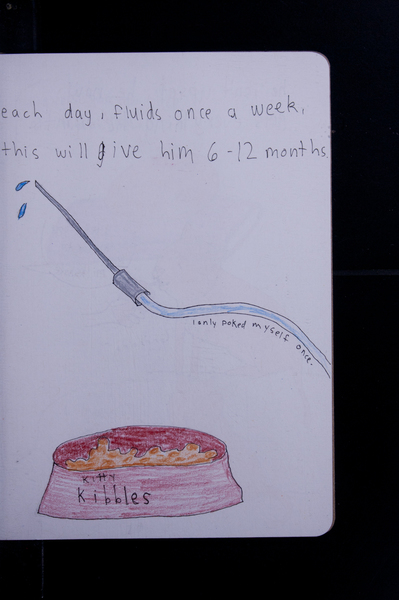 each day, fluids once a week,
this will give him 6-12 months.
I only poked myself once.
Kitty
Kibbles